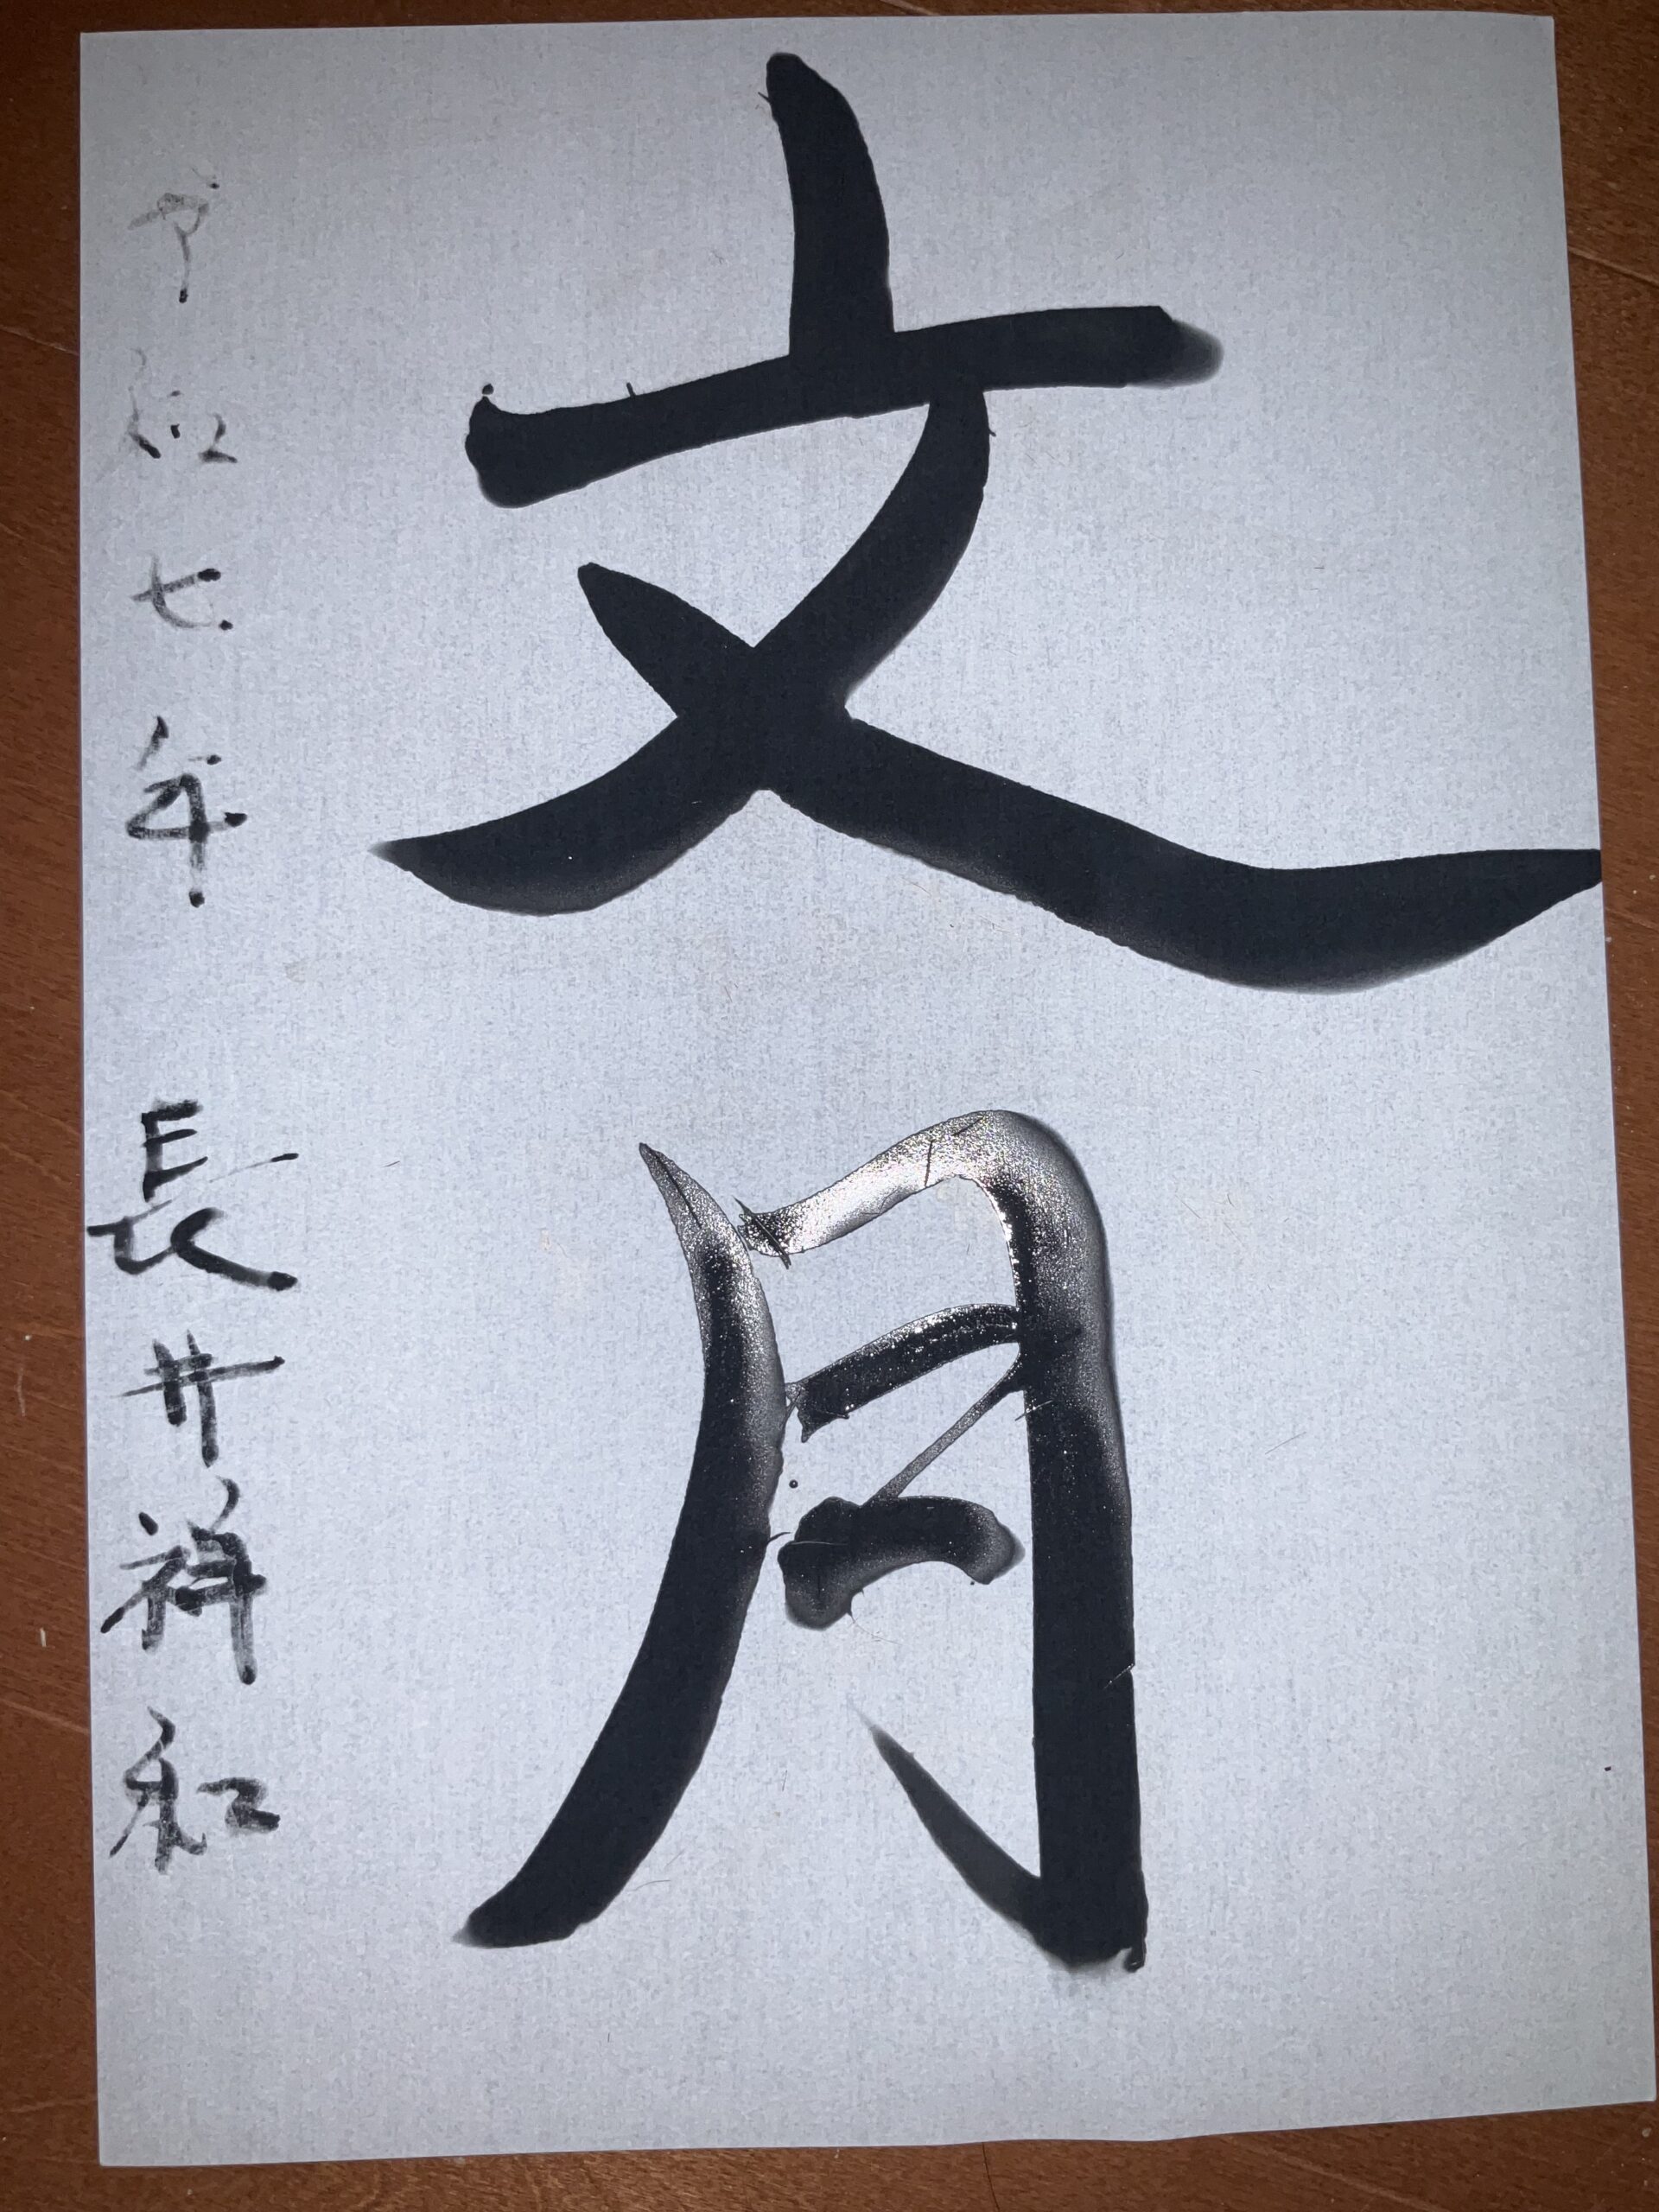 文月
七年 長井祥和